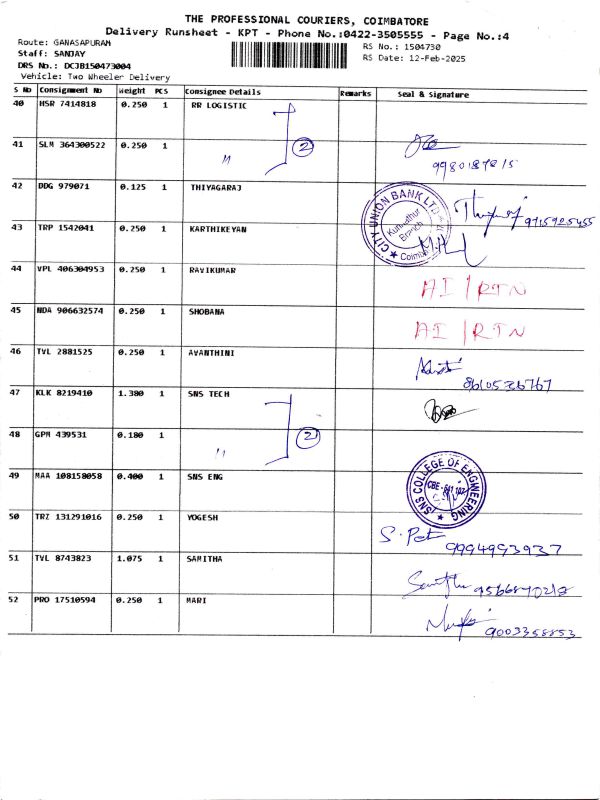 THE PROFESSIONAL COURIERS, COIMBATORE
Delivery Runsheet - KPT - Phone No.:0422-3505555 - Page No.:4
Route: GANASAPURAM
RS No.: 1504730
Staff: SANJAY
RS Date: 12-Feb-2025
DRS No.: DCJB150473004
Vehicle: Two Wheeler Delivery
S No Consignment No Weight PCS Consignee Details Remarks Seal & Signature
40 HSR 7414818 0.250 1 RR LOGISTIC
41 SLM 364300522 0.250 1 " 2
42 DDG 979071 0.125 1 THIYAGARAJ 9715925455
CITY UNION BANK LTD
Kurumbapalayam Branch
43 TRP 1542041 0.250 1 KARTHIKEYAN
44 VPL 406304953 0.250 1 RAVIKUMAR AI/RTN
45 NDA 906632574 0.250 1 SHOBANA AI/RTN
46 TVL 2881525 0.250 1 AVANTHINI 8610536767
47 KLK 8219410 1.380 1 SNS TECH
48 GPM 439531 0.180 1 " 2
49 MAA 108158058 0.400 1 SNS ENG
SNS COLLEGE OF ENGINEERING
CBE - 641 107
50 TRZ 131291016 0.250 1 YOGESH 9994993937
51 TVL 8743823 1.075 1 SAMITHA
52 PRO 17510594 0.250 1 MARI 9003358853